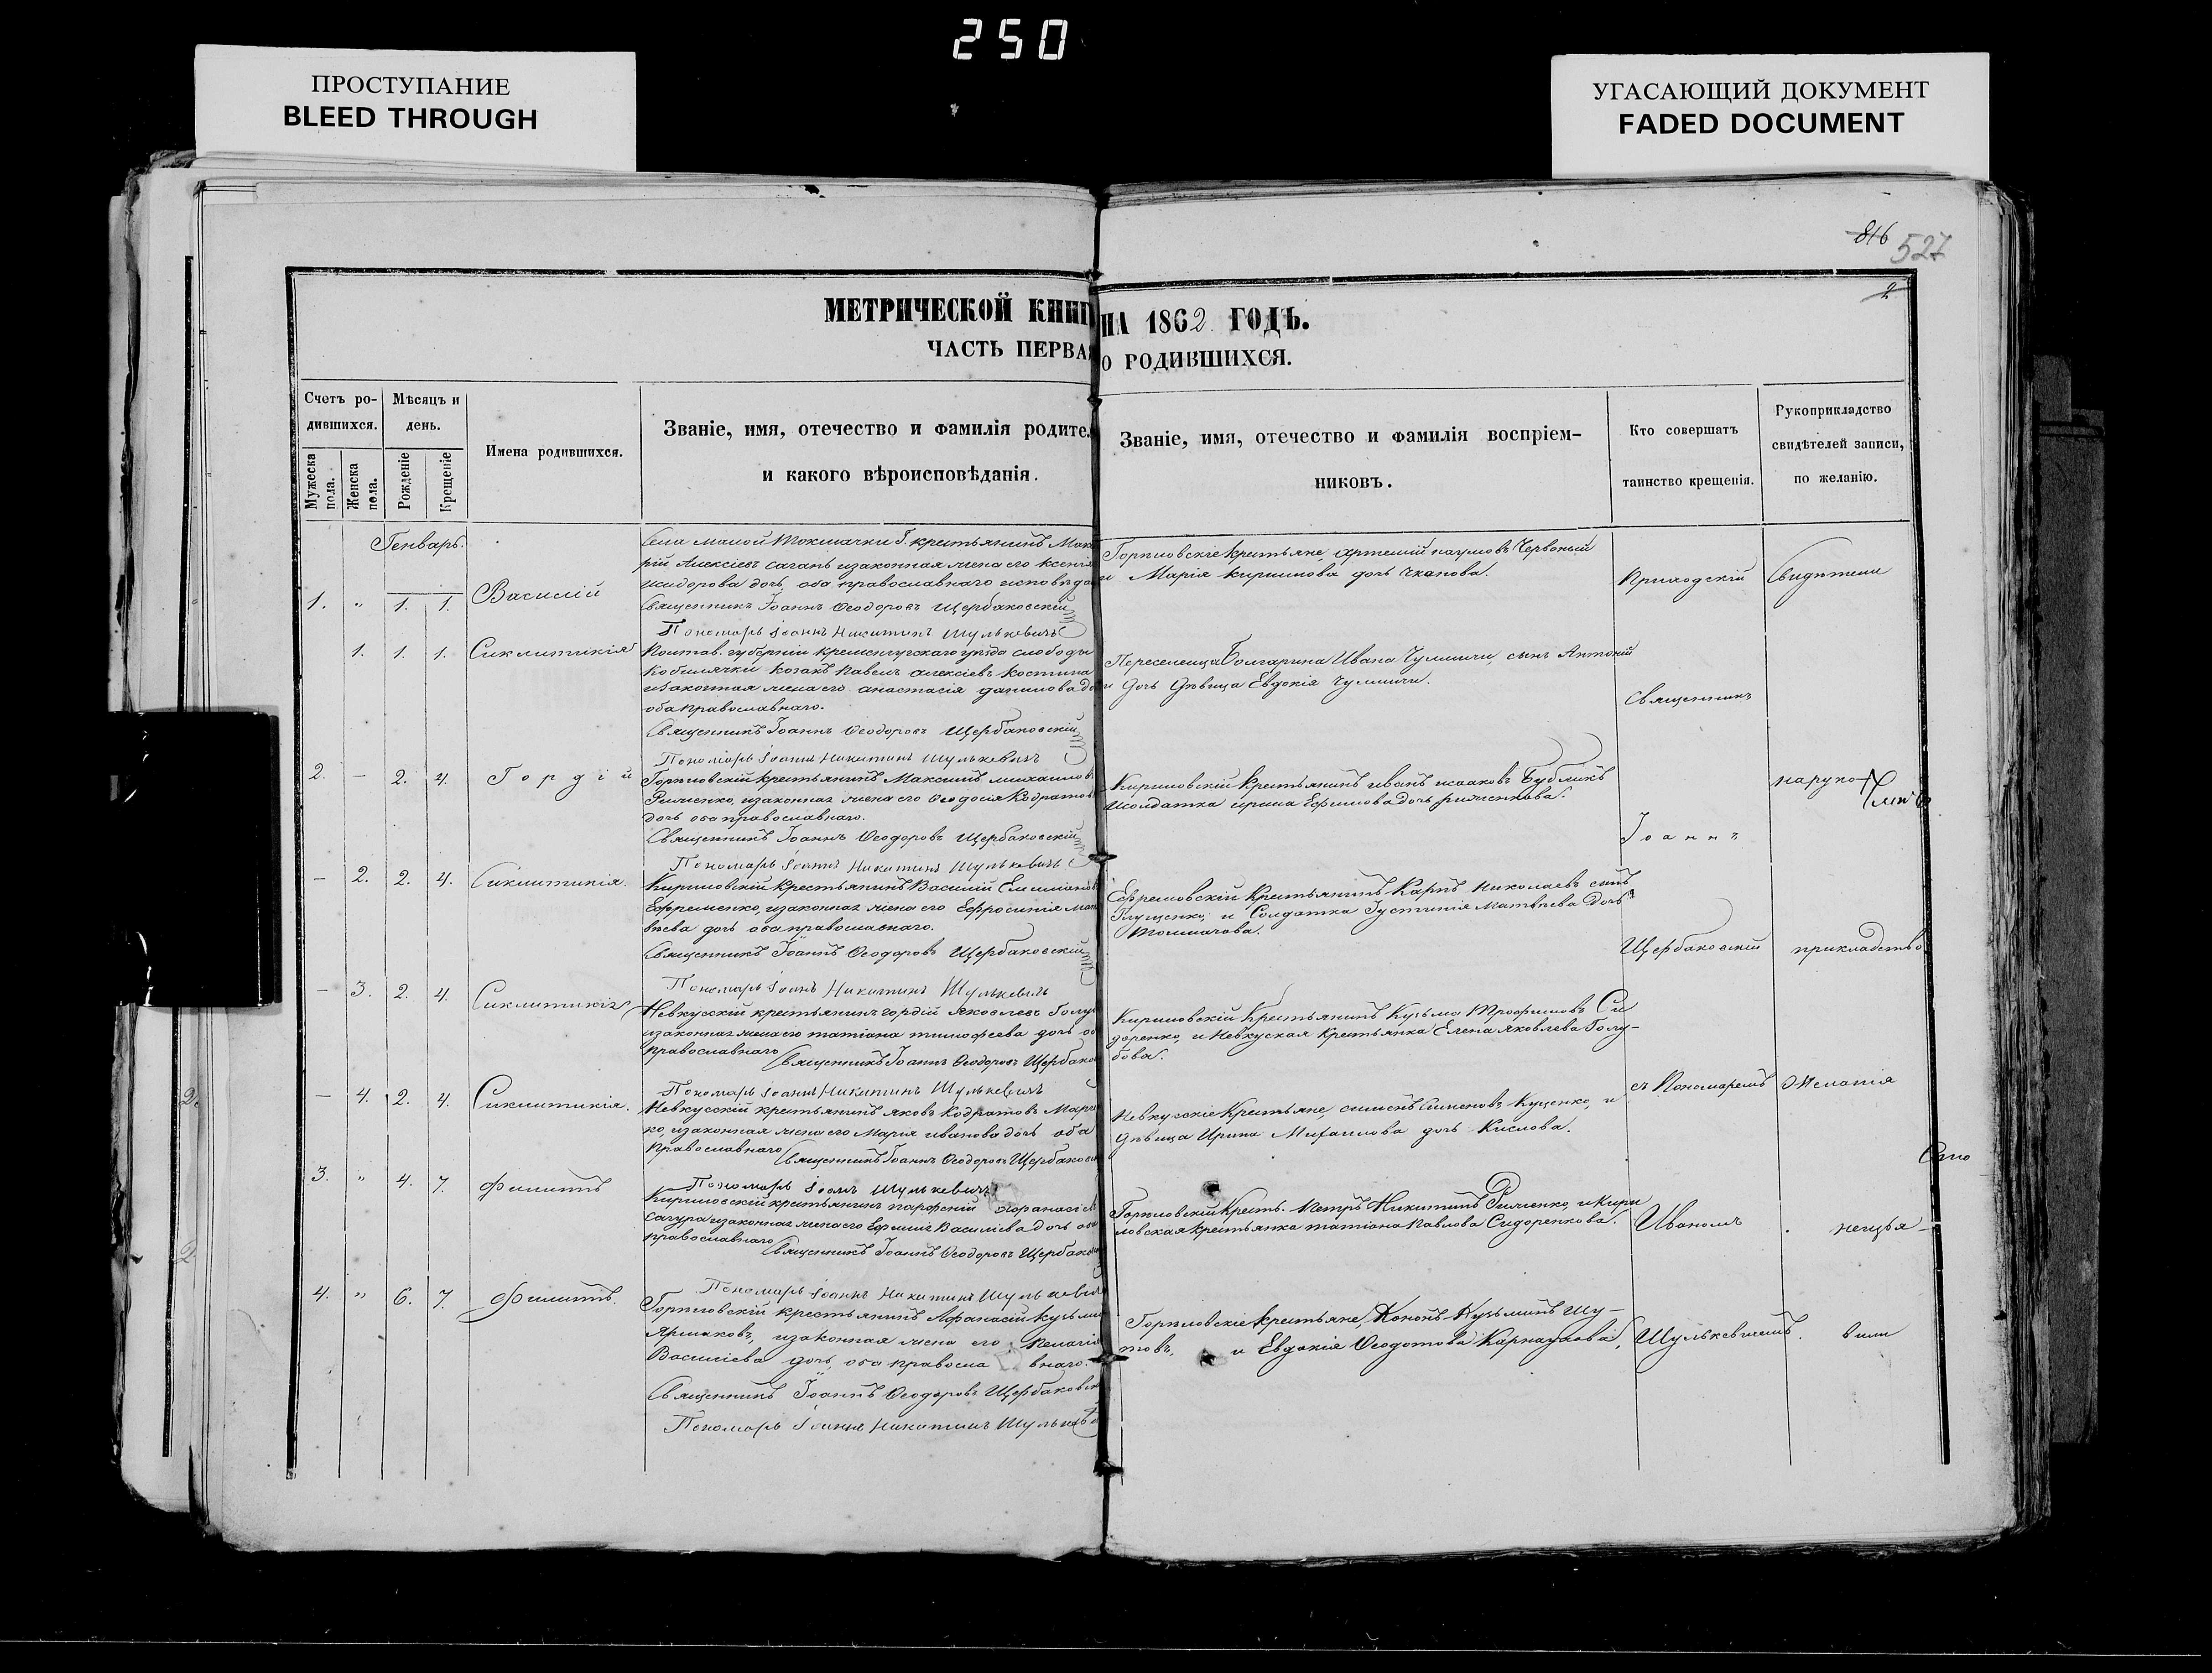 250
ПРОСТУПАНИЕ
BLEED THROUGH
УГАСАЮЩИЙ ДОКУМЕНТ
FADED DOCUMENT
816
527
2
МЕТРИЧЕСКОЙ КНИГ
НА 1862 ГОДЪ.
ЧАСТЬ ПЕРВАЯ
О РОДИВШИХСЯ.
Счетъ ро-
дившихся.
Мужеска
пола.
Женска
пола.
Мѣсяцъ и
день.
Рожденіе
Крещеніе
Имена родившихся.
Званіе, имя, отечество и фамилія родите
и какого вѣроисповѣданія.
Званіе, имя, отечество и фамилія воспріем-
никовъ.
Кто совершатъ
таинство крещенія.
Рукоприкладство
свидѣтелей записи,
по желанію.
Генварь.
1. " 1. 1. Василій
Села малой Токмачки Г. крестьянинъ Мак
рій Алексіевъ Саганъ изаконная жена его Ксенія
исидорова дочь, оба православнаго исповѣда
Священникъ Іоаннъ Ѳеодоровъ Щербаковскій
Пономарь Іоаннъ Никитинъ Шулькевичъ
Горѣловскіе крестьяне, артемій наумовъ Червоный
и Марія кирилова дочь
1. 1. 1. Сиклитикія
Полтав. губерніи кременчугскаго уѣзда слободы
Кобилячки козакъ Павелъ алексіевъ Костина
изаконная жена его анастасія данилова до
оба православнаго.
Священникъ Іоаннъ Ѳеодоровъ Щербаковскій
Пономарь Іоаннъ Никитинъ Шулькевичъ
Переселенца Болгарина Ивана сынъ Антоній
и дочь дѣвица Евдокія
2. — 2. 4. Гордій
Горѣловскій крестьянинъ Максимъ михаилов
изаконная жена его Ѳеодосія Кодратов
дочь оба православнаго.
Священникъ Іоаннъ Ѳеодоровъ Щербаковскій
Пономарь Іоаннъ Никитинъ Шулькевичъ
Кириловскій крестьянинъ иванъ исааковъ Бубликъ
исолдатка ирина Ефимова дочь
— 2. 2. 4. Сиклитикія.
Кириловскій крестьянинъ Василій Емиліанов
Ефременко, изаконная жена его Ефросинія мат
вѣева дочь оба православнаго.
Священникъ Іоаннъ Ѳеодоровъ Щербаковскій
Пономарь Іоаннъ Никитинъ Шулькевичъ
Ефремовскій крестьянинъ Карпъ Николаевъ сынъ
Глущенко, и Солдатка Іустинія Матвѣева дочь
— 3. 2. 4. Сиклитикія
Невкусскій крестьянинъ гордій Яковлевъ Голуб
изаконная жена его татіана тимофеева дочь об
православнаго Священникъ Іоаннъ Ѳеодоровъ Щербаков
Пономарь Іоаннъ Никитинъ Шулькевичъ
Кириловскій Крестьянинъ Кузьма Трофимовъ Си
доренко, и Невкуская Крестьянка Елена Яковлева Голу-
бова.
— 4. 2. 4. Сиклитикія.
Невкусскій крестьянинъ яковъ Кодратовъ Марч
ко, изаконная жена его Марія иванова дочь оба
Православнаго Священникъ Іоаннъ Ѳеодоровъ Щербаковск
Пономарь Іоаннъ Шулькевичъ
Невкусскіе Крестьяне, симеонъ Симеоновъ Куценко, и
дѣвица Ирина Михаилова дочь Кислова.
3. " 4. 7. Филиппъ
Кириловскій крестьянинъ парфеній Афанасіев
Сагура изаконная жена его Ефимія Василіева дочь оба
православнаго Священникъ Іоаннъ Ѳеодоровъ Щербаков
Пономарь Іоаннъ Никитинъ Шулькевич
Горѣловскій Крестъ. Петръ Никитинъ икири
ловская крестьянка татіана Павлова Сидоренкова.
4. " 6. 7. Филиппъ.
Горѣловскій крестьянинъ Афанасій кузьми
Ярмаковъ, изаконная жена его, Пелагія
Василіева дочь, оба православнаго.
Священникъ Іоаннъ Ѳеодоровъ Щербаковск
Пономарь Іоаннъ Никитинъ Шулькев
Горѣловскіе крестьяне, Кононъ Кузьминъ Шу-
товъ, и Евдокія Ѳеодотова Карнаухова,
Приходскій
Священникъ
Іоаннъ
Щербаковскій
съ Пономаремъ
Иваномъ
Шулькевичемъ.
Свидѣтели
наруко-
прикладство
желанія
неизъя-
вили